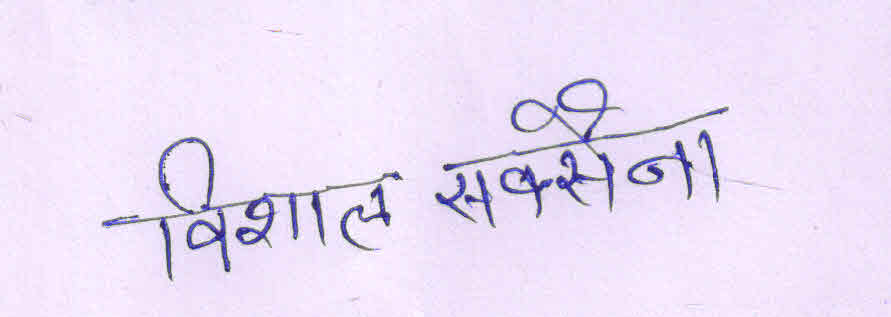 विशाल सक्सैना